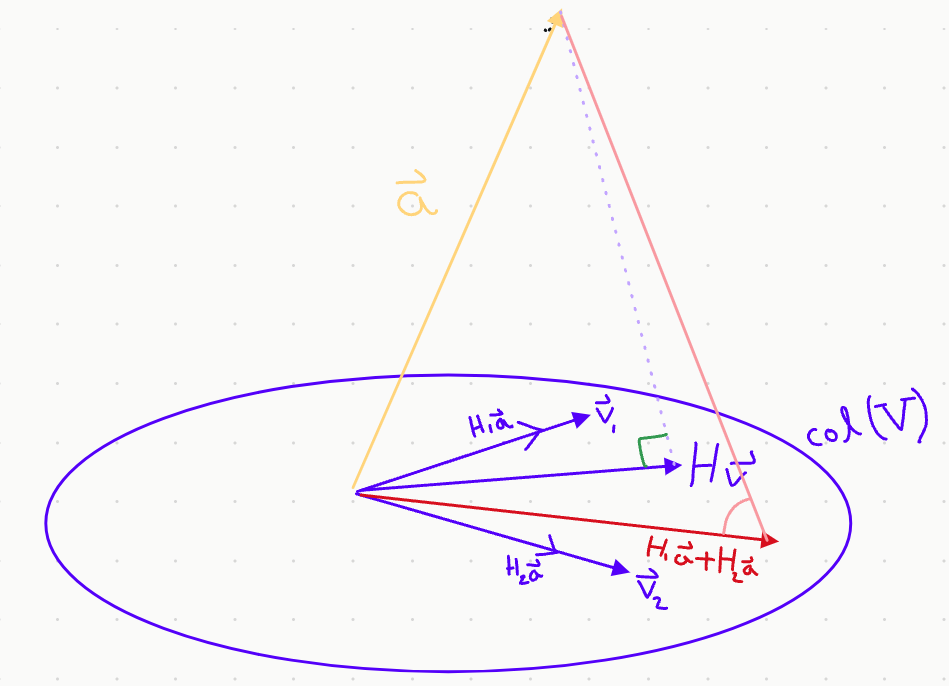 a⃗
H₁a⃗
v⃗₁
col(V)
Hv⃗
H₁a⃗+H₂a⃗
H₂a⃗
v⃗₂